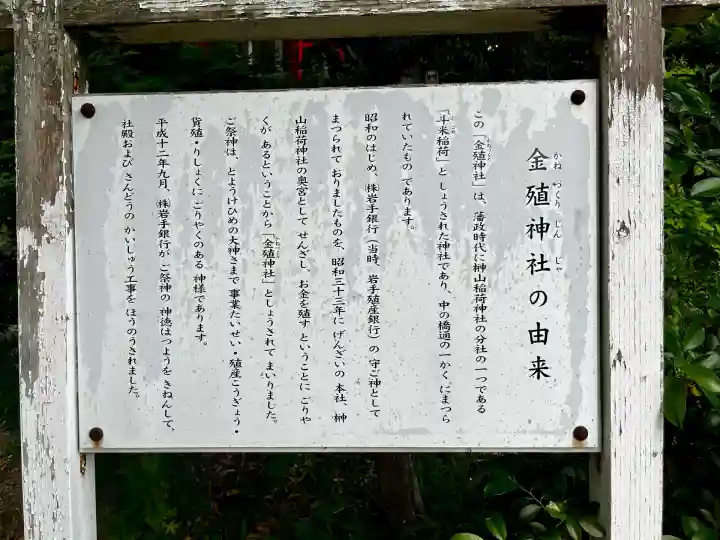 金殖神社の由来
かね づくり じん じゃ
この「金殖神社」は、藩政時代に榊山稲荷神社の分社の一つである
「斗米稲荷」と しょうされた神社であり、中の橋通の一かくにまつら
れていたもの であります。
昭和のはじめ、㈱岩手銀行(当時、岩手殖産銀行)の 守ご神として
まつられて おりましたものを、昭和三十三年に げんざいの 本社、榊
山稲荷神社の奥宮として せんざし、お金を殖す ということに ごりや
くが あるということから「金殖神社」としょうされて まいりました。
ご祭神は、とようけひめの大神さまで 事業たいせい・殖産こうぎょう・
貨殖・りしょくに ごりやくのある 神様であります。
平成十二年九月、㈱岩手銀行が ご祭神の 神徳はつようを きねんして、
社殿および さんどうの かいしゅう工事を ほうのうされました。